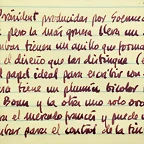 producidas por Soenne
pero la mas grossa lleva un
tienen un anillo que forma
el diseño que las distingue (e
papel ideal para escribir con
tiene un plumin bicolor
Bonn y la otra uno solo oro
el mercado francés y puede
para el control de la tin